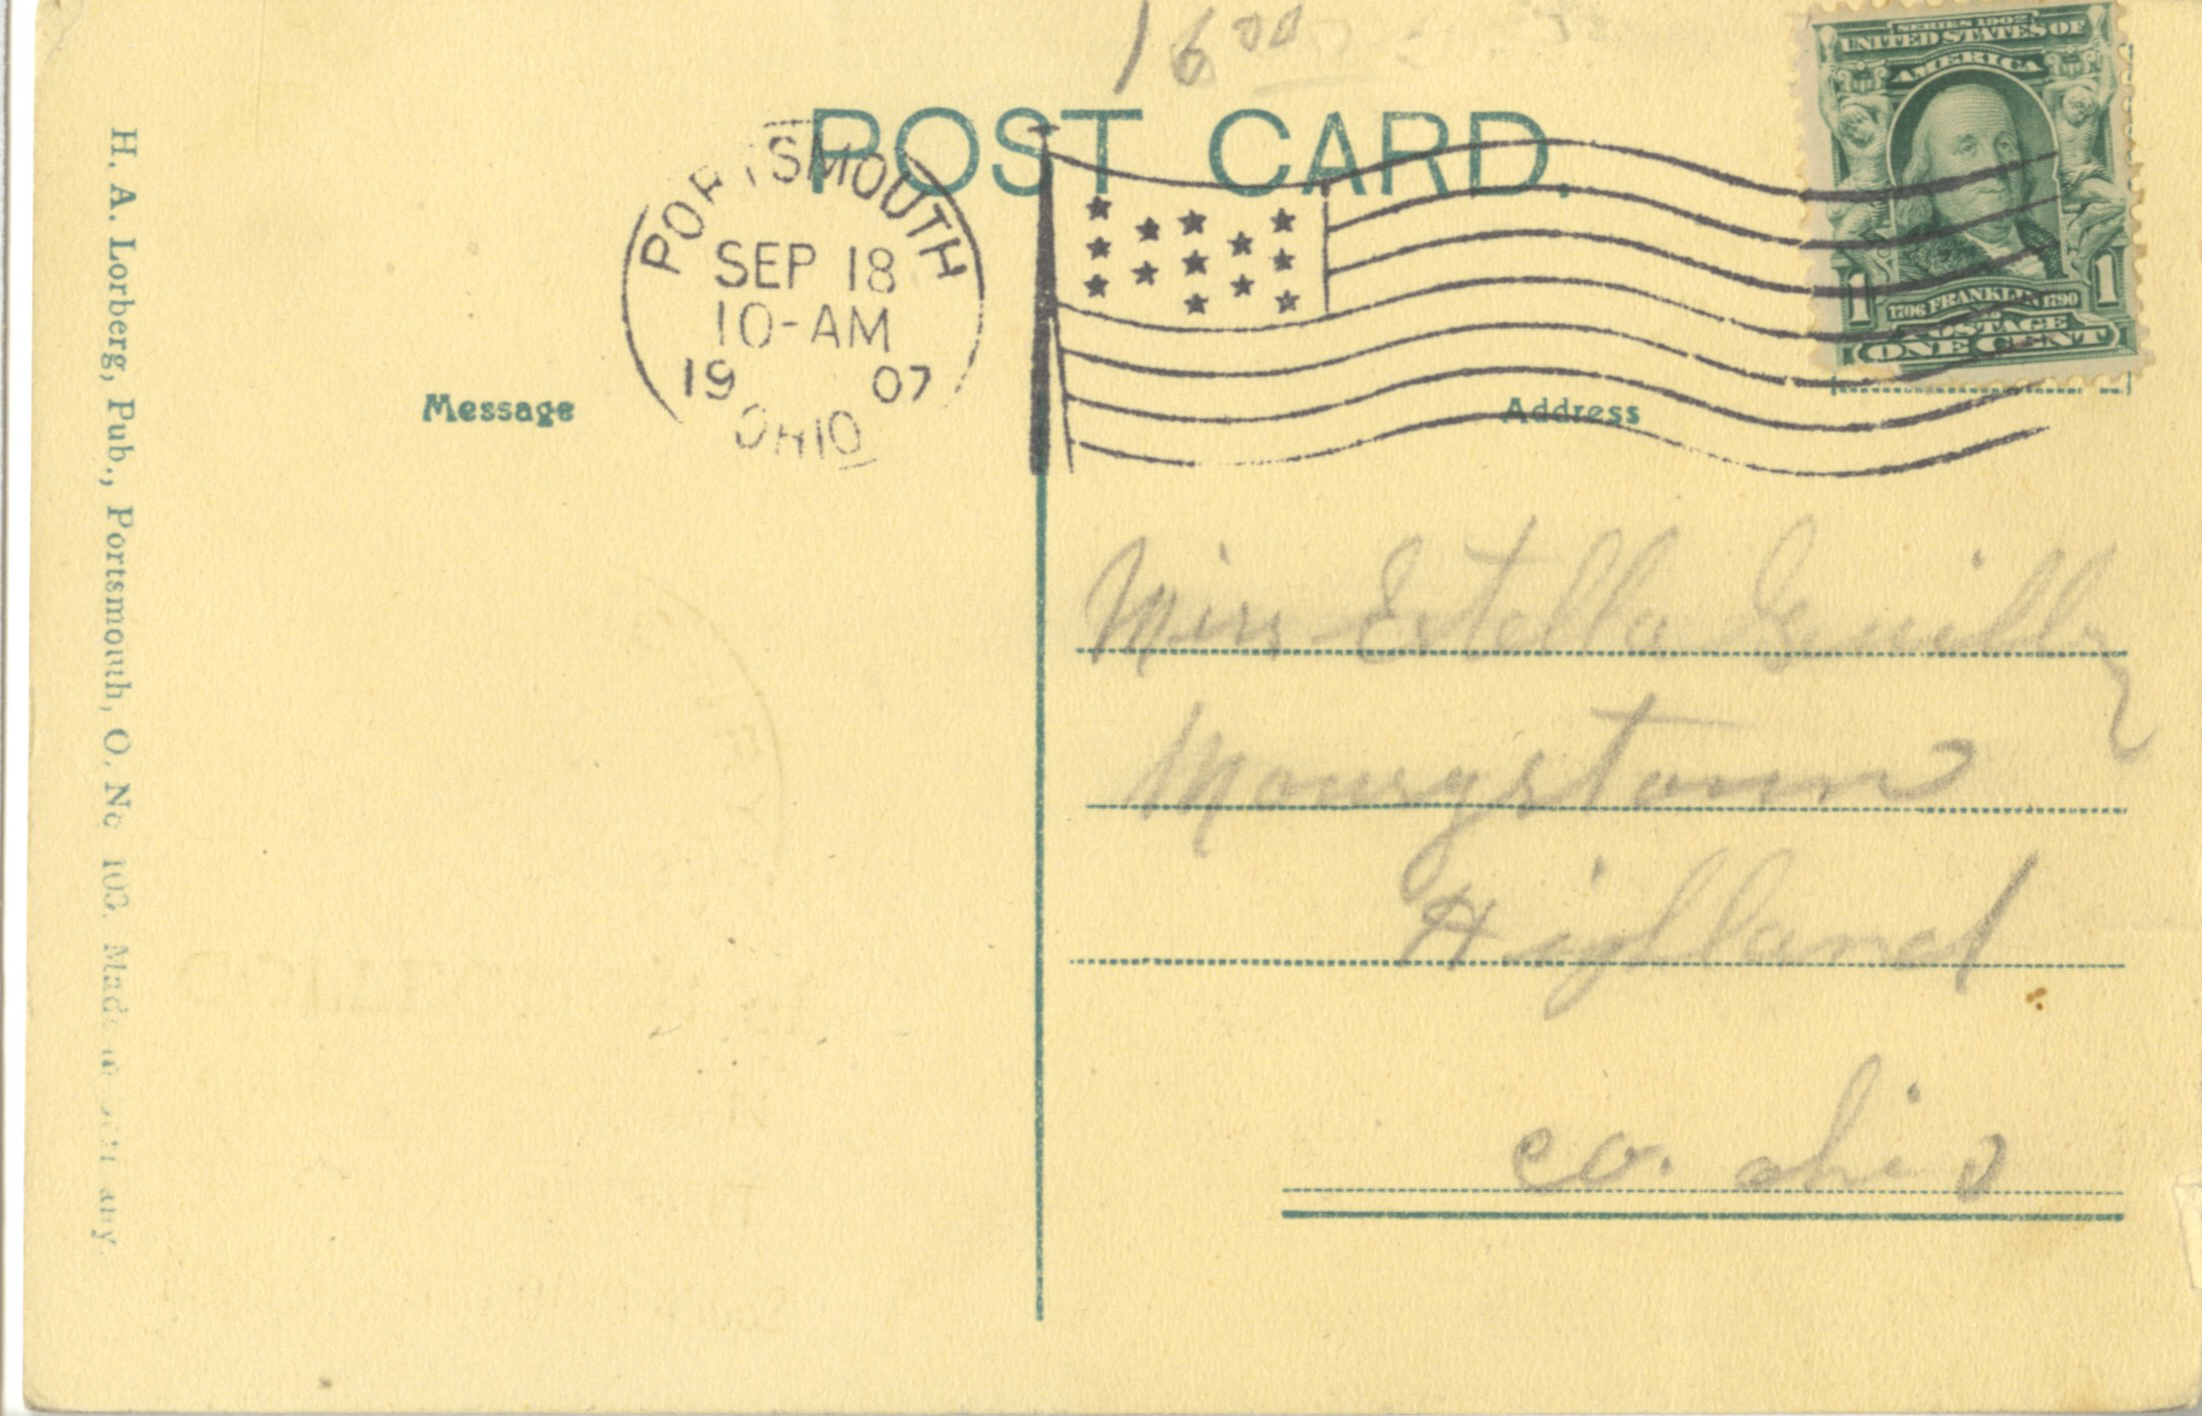 16 00
POST CARD.
SERIES 1902
UNITED STATES OF
AMERICA
1 1
1706 FRANKLIN 1790
POSTAGE
ONE CENT
PORTSMOUTH
SEP 18
10-AM
19 07
OHIO
Message
Address
Miss Estella
Mowrystown
Highland
co. ohio
H. A. Lorberg, Pub., Portsmouth, O. No 103. Made in